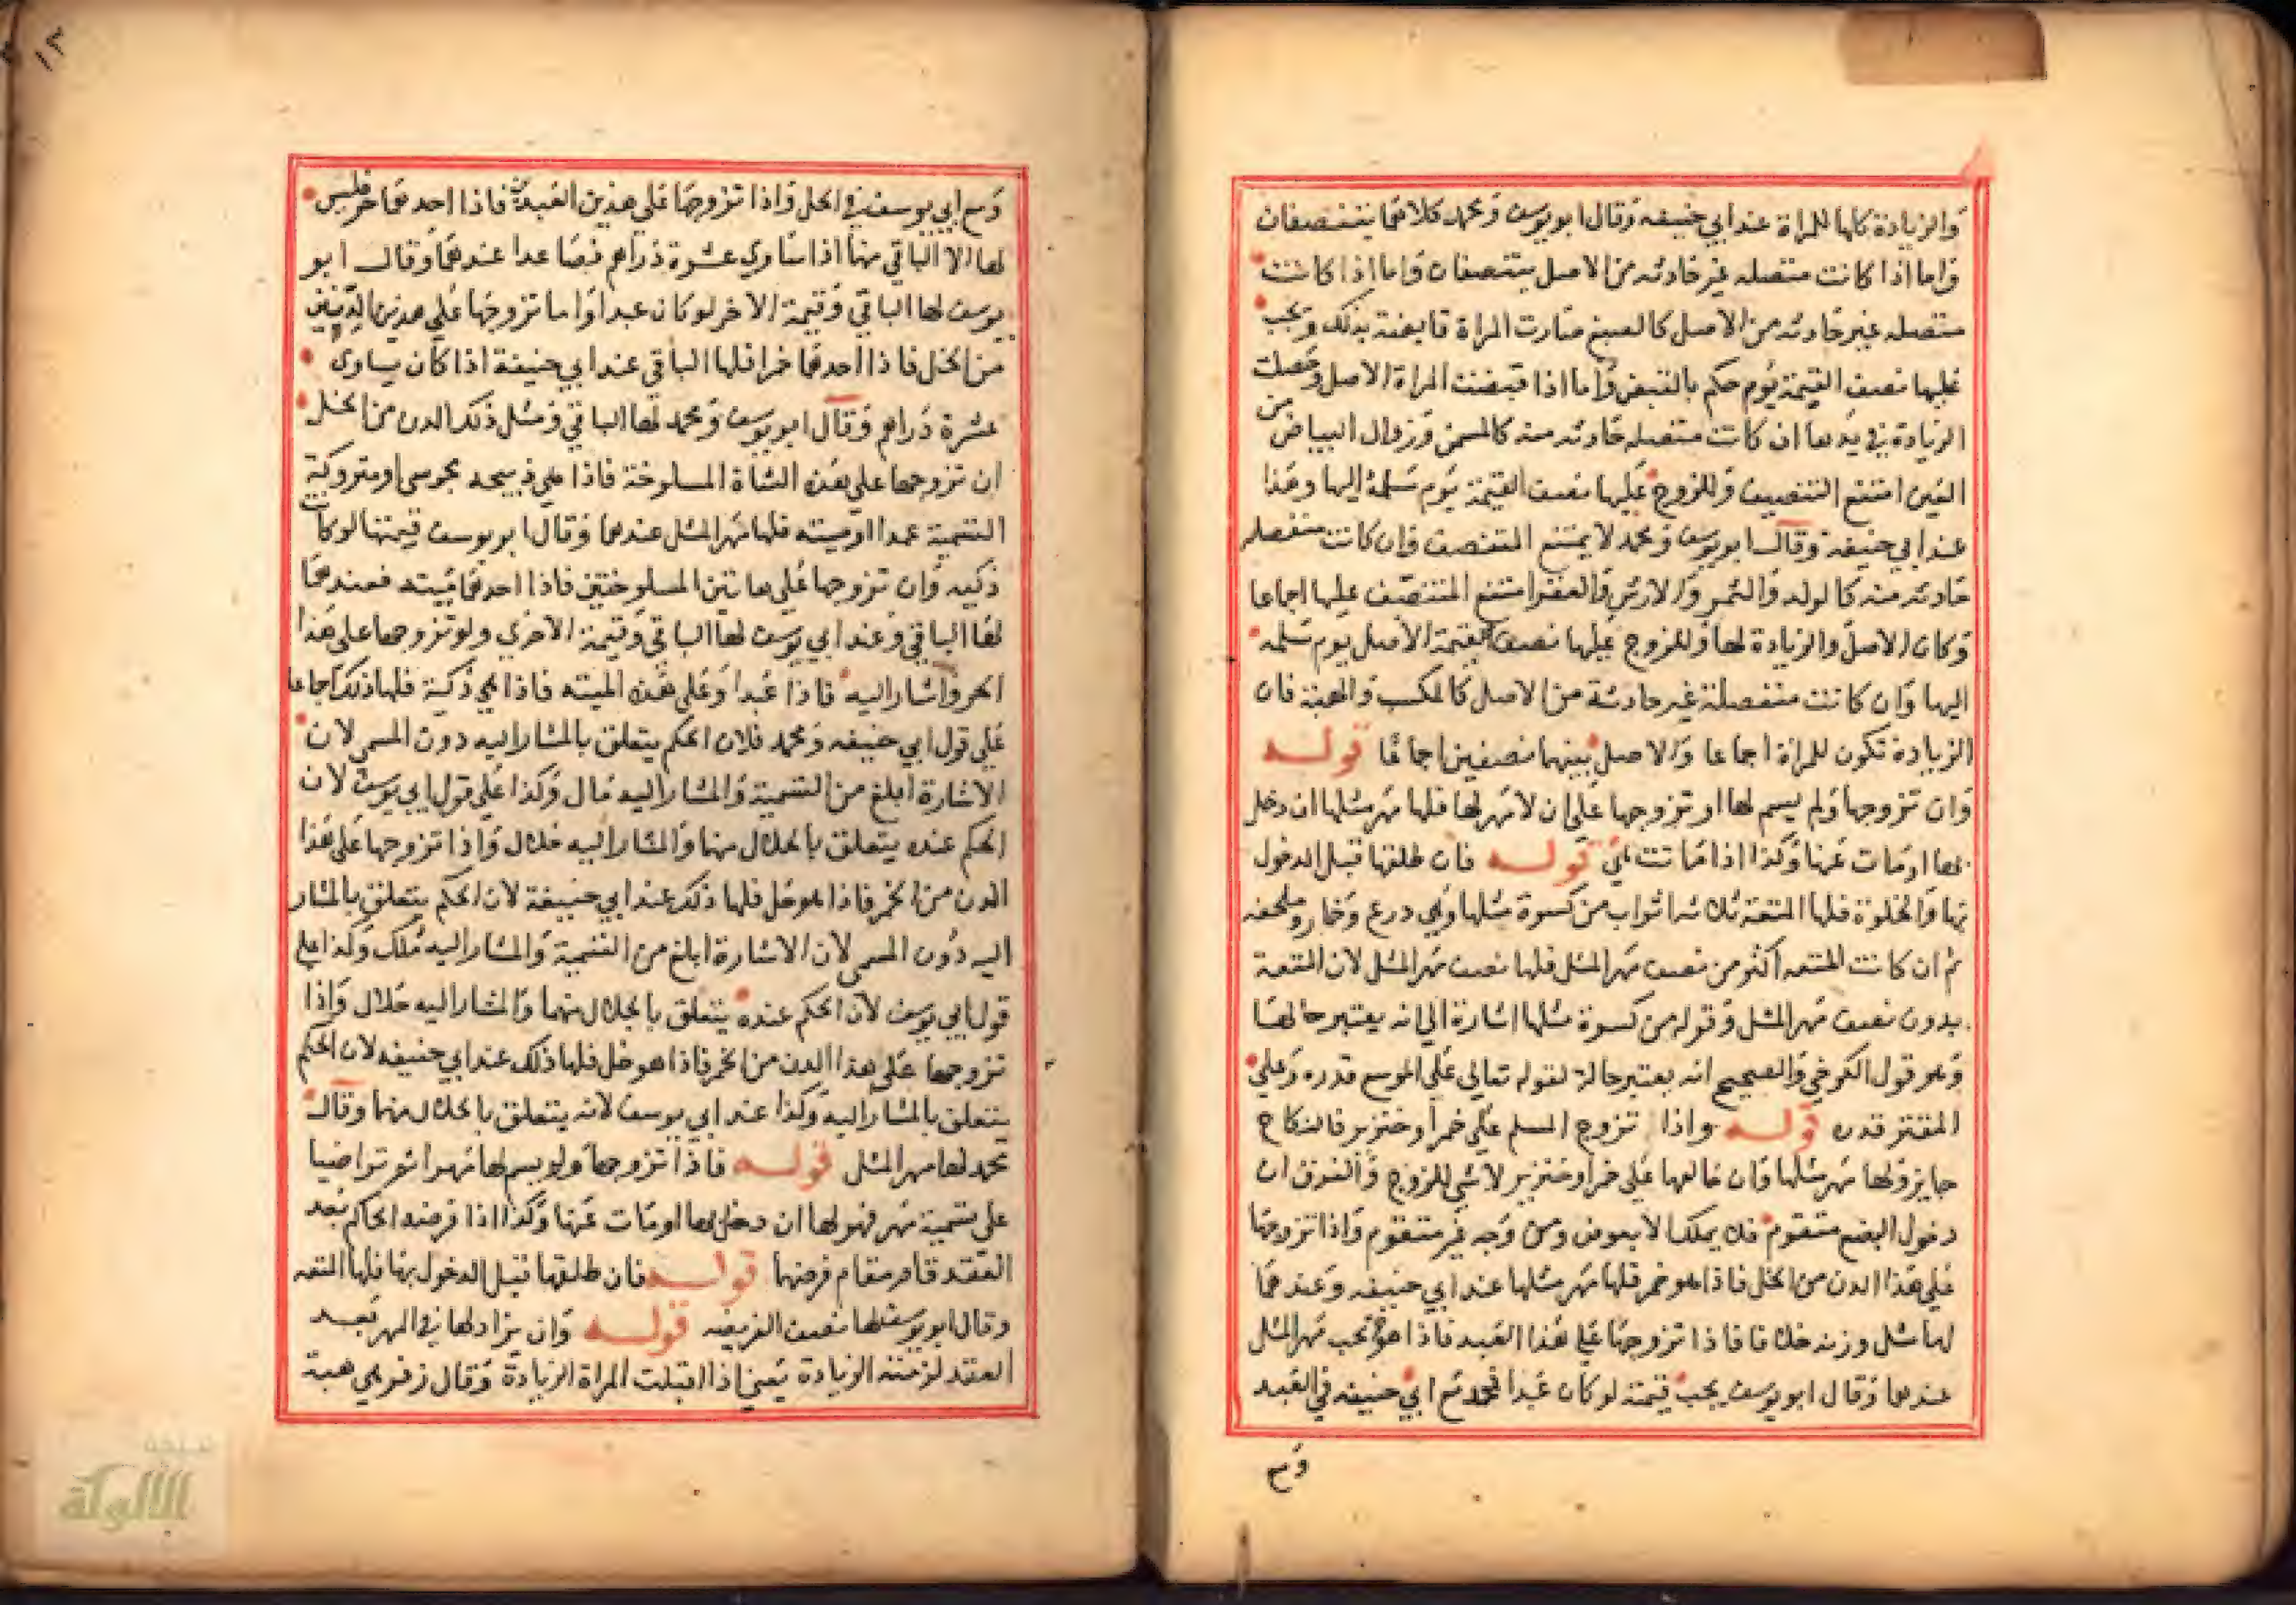 والزيادة كلها للمراة عند ابي حنيفه وقال ابو يوسف ومحمد كلاهما يتنصفان
واما اذا كانت متصله غير حادثه من الاصل يتنصفان واما اذا كانت
متصله غير حادثه من الاصل كالصبغ صارت المراة قابضة بذلك ويجب
عليها نصف القيمة يوم حكم بالقبض واما اذا قبضت المراة الاصل وحصلت
الزيادة في يدها ان كانت متصله حادثه منه كالسمن وزوال البياض من
العين امتنع التنصيف وللزوج عليها نصف القيمة يوم سلمه اليها وهذا
عند ابي حنيفة وقال ابو يوسف ومحمد لا يمتنع التنصف وان كانت منفصله
حادثه منه كالولد والثمر والارش والعقر امتنع التنصف عليها اجماعا
وكان الاصل والزيادة لها وللزوج عليها نصف قيمة الاصل يوم سلمه
اليها وان كانت منفصلة غير حادثة من الاصل كالكسب والهبة فان
الزيادة تكون للمراة اجماعا والاصل بينهما نصفين اجماعا قوله
وان تزوجها ولم يسم لها او تزوجها على ان لا مهر لها فلها مهر مثلها ان دخل
بها او مات عنها وكذا اذا ماتت هي قوله فان طلقها قبل الدخول
بها والخلوة فلها المتعة ثلاثه اثواب من كسوة مثلها وهي درع وخمار وملحفه
ثم ان كانت المتعه اكثر من نصف مهر المثل فلها نصف مهر المثل لان المتعة
بدون نصف مهر المثل وقوله من كسوة مثلها اشارة الي انه يعتبر حالها
وهو قول الكرخي والصحيح انه يعتبر حاله لقوله تعالى على الموسع قدره وعلي
المقتر قدره قوله واذا تزوج المسلم علي خمر او خنزير فالنكاح
جايز ولها مهر مثلها وان خالعها علي خمر او خنزير لا شي للزوج والفرق ان
دخول البضع متقوم فلا يملك الا بعوض ومن وجه غير متقوم واذا تزوجها
علي هذا الدن من الخل فاذا هو خمر فلها مهر مثلها عند ابي حنيفه وعندهما
لها مثل وزنه خلا فاذا تزوجها علي هذا العبد فاذا هو حر يجب مهر المثل
عندهما وقال ابو يوسف يجب قيمته لو كان عبدا فمحمد مع ابي حنيفه في العبد
ومع
ومع ابي يوسف في الخل واذا تزوجها علي هذين العبدين فاذا احدهما حر فليس
لها الا الباقي منهما اذا ساوي عشرة دراهم فصاعدا عندهما وقال ابو
يوسف لها الباقي وقيمة الاخر لو كان عبدا واما تزوجها علي هذين الدنين
من الخل فاذا احدهما خمر فلها الباقي عند ابي حنيفة اذا كان يساوى
عشرة دراهم وقال ابو يوسف ومحمد لها الباقي ومثل ذلك الدن من الخل
ان تزوجها علي هذه الشاة المسلوخة فاذا هي ذبيحه مجوسي او متروكة
التسمية عمدا او ميته فلها مهر المثل عندهما وقال ابو يوسف قيمتها لو كانت
ذكيه وان تزوجها علي هاتين المسلوختين فاذا احدهما ميته فعندهما
لها الباقي وعند ابي يوسف لها الباقي وقيمة الاخرى ولو تزوجها على هذا
الحر واشار اليه فاذا عبدا وعلي هذه الميته فاذا هي ذكية فلها ذلك اجماعا
علي قول ابي حنيفه ومحمد فلان الحكم يتعلق بالمشار اليه دون المسمى لان
الاشارة ابلغ من التسمية والمشار اليه مال وكذا علي قول ابي يوسف لان
الحكم عنده يتعلق بالحلال منهما والمشار اليه حلال واذا تزوجها علي هذا
الدن من الخمر فاذا هو خل فلها ذلك عند ابي حنيفة لان الحكم يتعلق بالمشار
اليه دون المسمى لان الاشارة ابلغ من التسمية والمشار اليه ملك وكذا علي
قول ابي يوسف لان الحكم عنده يتعلق بالحلال منهما والمشار اليه حلال واذا
تزوجها علي هذا الدن من الخمر فاذا هو خل فلها ذلك عند ابي حنيفه لان الحكم
يتعلق بالمشار اليه وكذا عند ابي يوسف لانه يتعلق بالحلال منهما وقال
محمد لها مهر المثل قوله فاذا تزوجها ولم يسم لها مهرا ثم تراضيا
على تسمية مهر فهو لها ان دخل بها او مات عنها وكذا اذا فرضه الحاكم بعد
العقد قام مقام فرضهما قوله فان طلقها قبل الدخول بها فلها المتعه
وقال ابو يوسف لها نصف الفريضه قوله وان زاد لها في المهر بعد
العقد لزمته الزيادة يعني اذا قبلت المراة الزيادة وقال زفر هي هبة
الألوكة